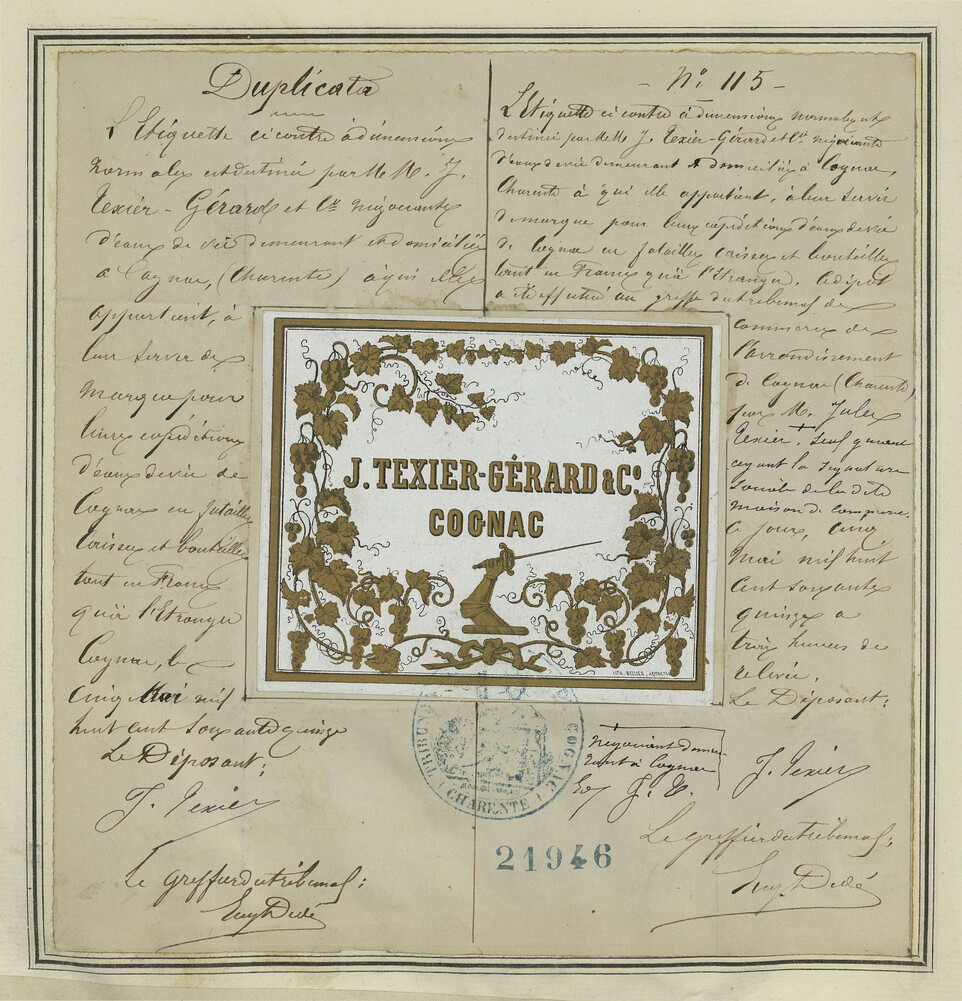 Duplicata
L'Etiquette ci contre à dimensions
normales est destiné par M. M. J.
Texier-Gérard et Cie négociants
d'eaux de vie demeurant et domiciliés
à Cognac, (Charente) à qui elle
appartient, à
leur servir de
marque pour
leurs expéditions
d'eaux de vie de
Cognac en futailles
caisses et bouteilles
tant en France
qu'à l'Etranger
Cognac, le
cinq Mai mil
huit cent soixante quinze
Le Déposant;
J. Texier
Le greffier du tribunal;
Eug Dedé
- No 115 -
L'Etiquette ci contre à dimensions normales est
destiné par M M J. Texier-Gérard et Cie négociants
d'eaux de vie demeurant & domiciliés à Cognac,
Charente à qui elle appartient, à leur servir
de marque pour leurs expéditions d'eaux de vie
de Cognac en futailles caisses et bouteilles
tant en France qu'à l'Etranger. Ce dépôt
a été effectué au greffe du tribunal de
commerce de
l'arrondissement
de Cognac (Charente)
par M. Jules
Texier, + seul gérant
ayant la signature
sociale de la dite
maison de commerce.
Ce jour, cinq
Mai mil huit
cent soixante
quinze à
trois heures de
relevée.
Le Déposant;
+ négociant demeu-
rant à Cognac
J. T.
J. Texier
Le greffier du tribunal;
Eug. Dedé
J. TEXIER-GÉRARD & Co.
COGNAC
TRIBUNAL
COGNAC
(CHARENTE)
21946